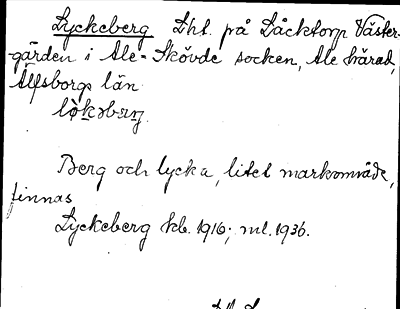 Lyckeberg Lht. på Låcktorp Väster-
gården i Ale-Skövde socken, Ale härad,
Älfsborgs län
Berg och lycka, litet markområde,
finnas
Lyckeberg kb. 1916; ml. 1936.